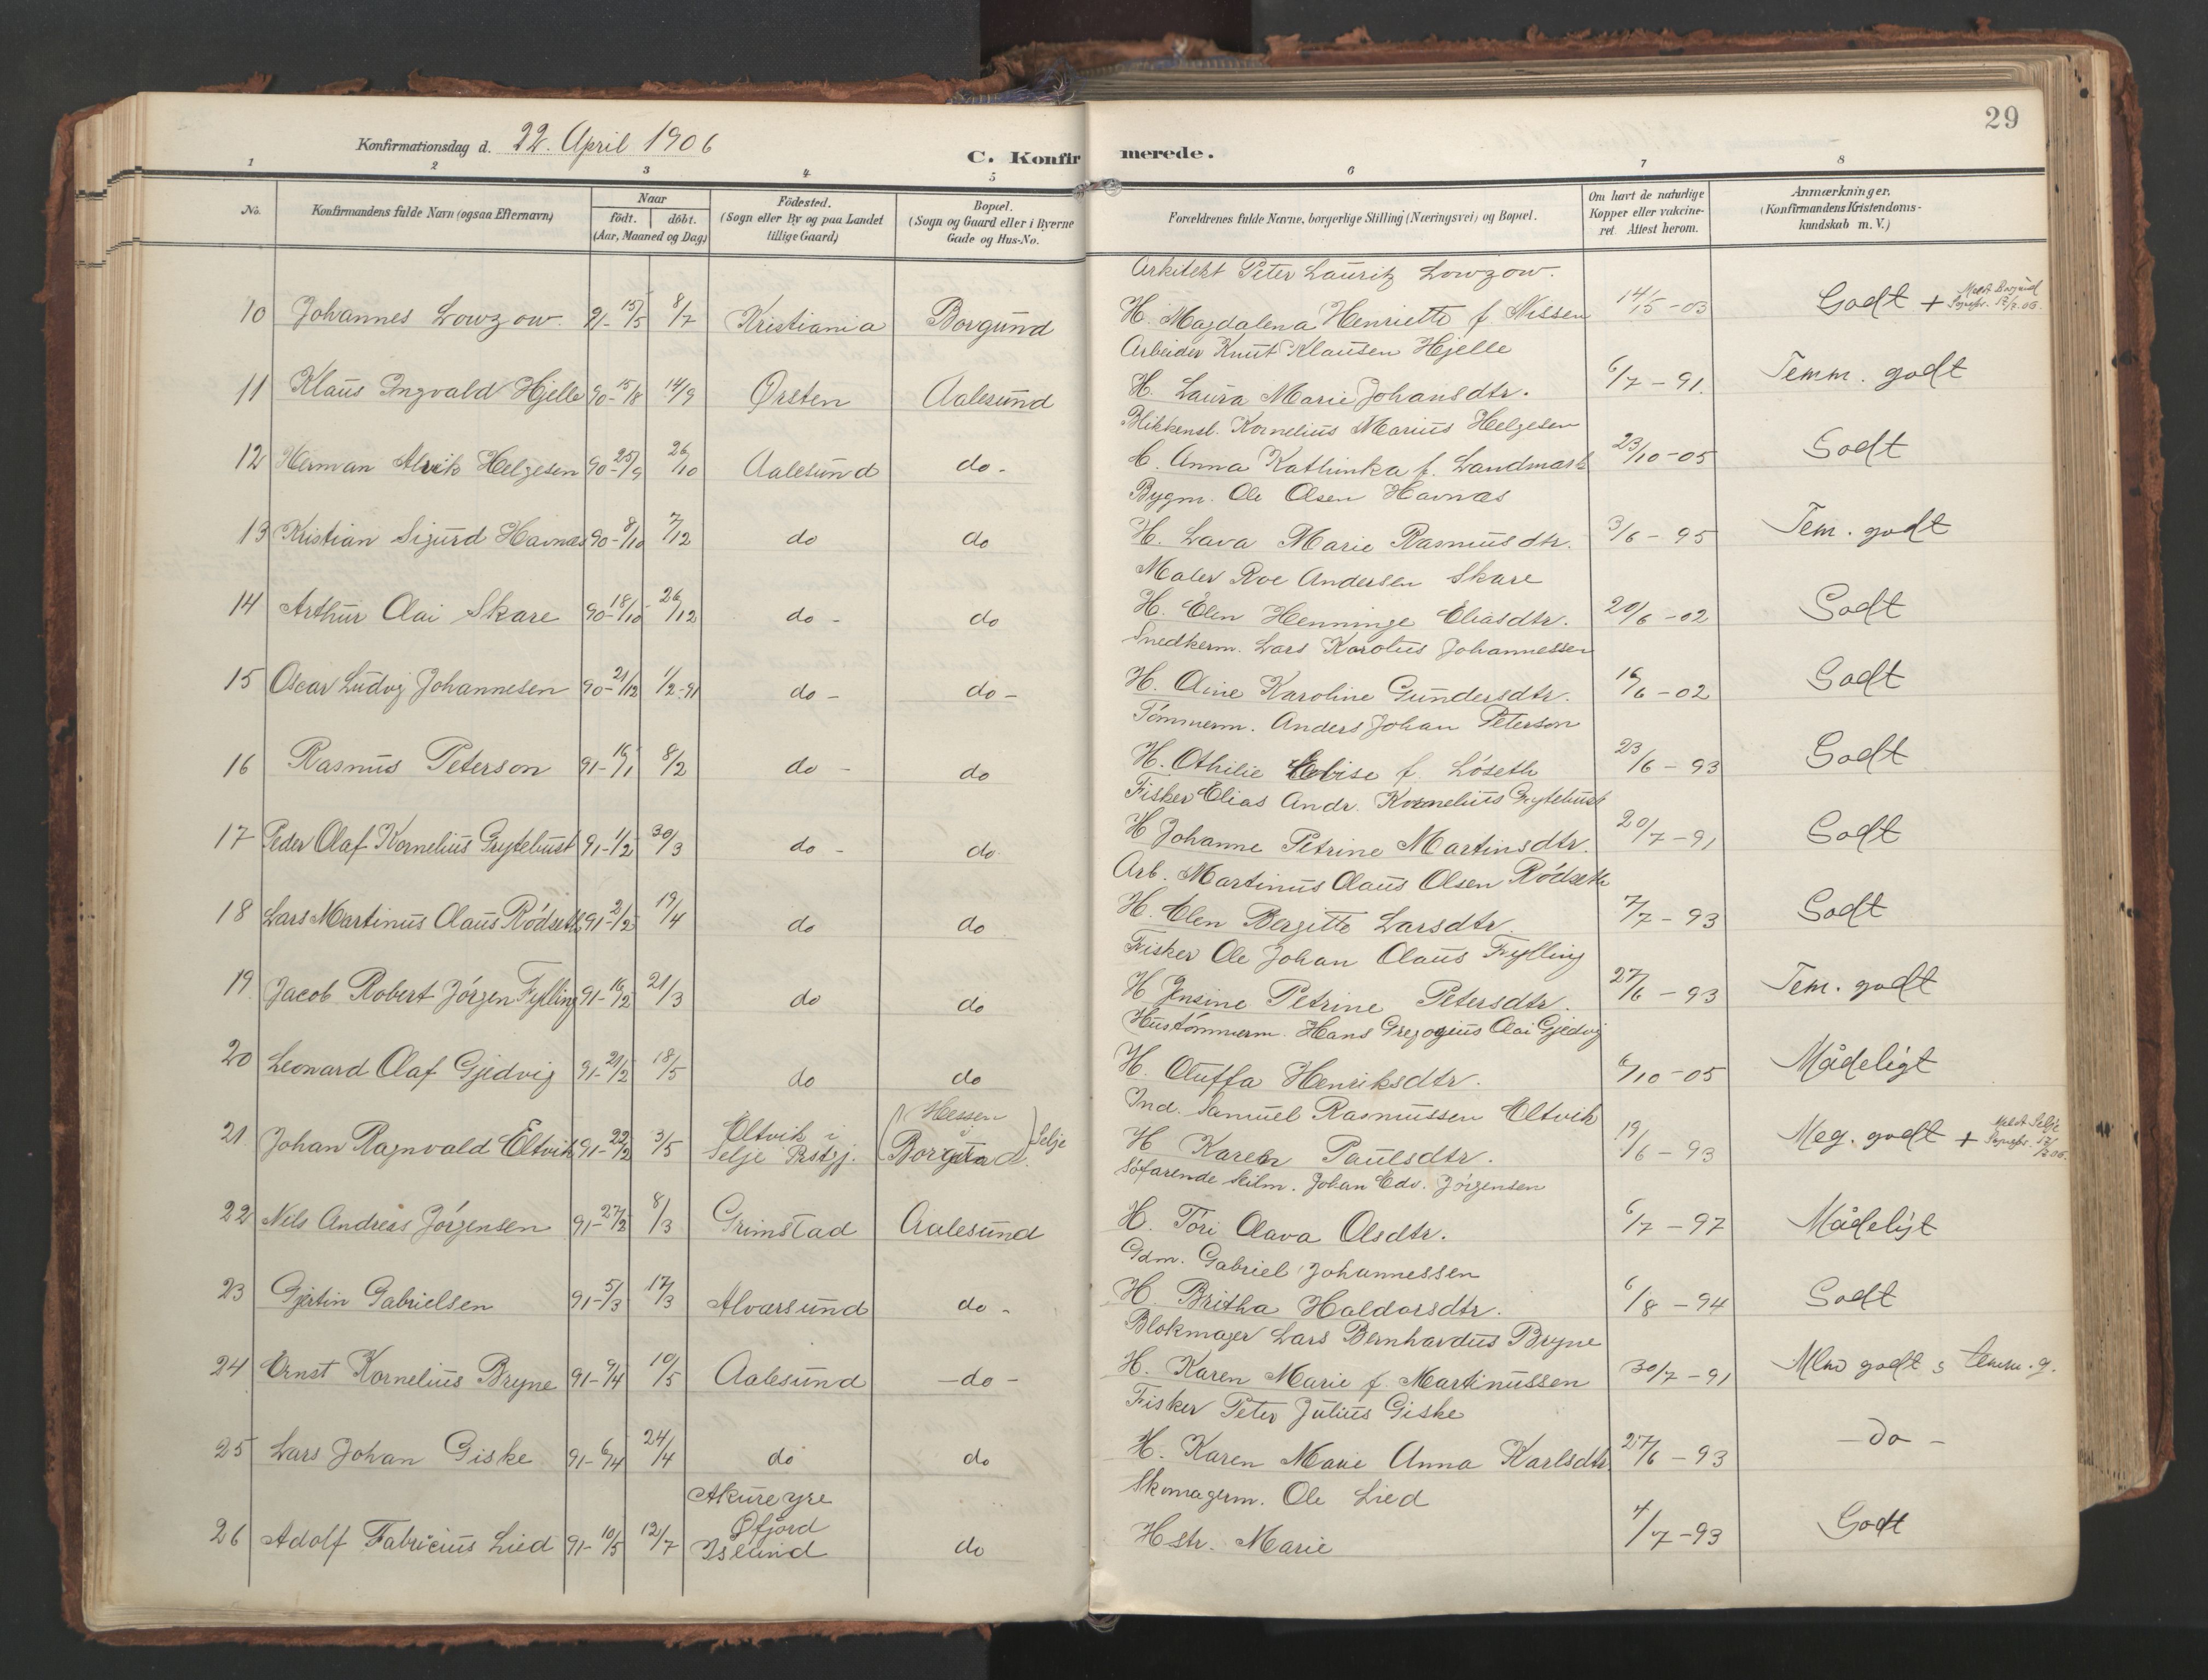 29
Konfirmationsdag d. 22. April 1906
C. Konfirmerede.
1 2 3 4 5 6 7 8
No.
Konfirmandens fulde Navn (ogsaa Efternavn)
Naar
födt. döbt.
(Aar, Maaned og Dag)
Födested.
(Sogn eller By og paa Landet
tillige Gaard)
Bopæl.
(Sogn og Gaard eller i Byerne
Gade og Hus-No.
Forældrenes fulde Navne, borgerlige Stilling (Næringsvei) og Bopæl.
Om havt de naturlige
Kopper eller vakcine-
ret Attest herom.
Anmærkninger.
(Konfirmandens Kristendoms-
kundskab m. V.)
Arkitekt Peter Lauritz Lowzow.
10 Johannes Lowzow 91-15/5 8/7 Kristiania Borgund H. Magdalena Henriette f. Nissen 14/5-03 Godt + Meldt Borgund
Arbeider Knut Klausen Hjelle
11 Klaus Ingvald Hjelle 90-15/8 14/9 Ørsten Aalesund H. Laura Marie Johansdtr. 6/7-91. Temm. godt
Blikkensl. Kornelius Marius Helgesen
12 Herman Alvik Helgesen 90-25/9 26/10 Aalesund do- H. Anna Kathinka f. Landmark 23/10-05 Godt
Bygm. Ole Olsen Havnæs
13 Kristian Sigurd Havnæs 90-8/10 7/12 do do H. Lava Marie Rasmusdtr. 3/6-95 Tem. godt
Maler Roe Andersen Skare
14 Arthur Olai Skare 90-18/10 26/12 do- do H. Elen Henninge Eliasdtr. 20/6-02 Godt
Snedkerm. Lars Karolus Johannessen
15 Oscar Ludvig Johannesen 90-21/12 1/2-91 do- do- H. Oline Karoline Gundersdtr. 16/6-02 Godt
Tömmerm. Anders Johan Peterson
16 Rasmus Peterson 91-16/1 8/2 do- do H. Othilie Elvise f. Löseth 23/6-93 Godt
Fisker Elias Andr. Kornelius Grytebust
17 Peder Olaf Kornelius Grytebust 91-1/2 30/3 do- do. H Johanne Petrine Martinsdtr. 20/7-91 Godt
Arb. Martinus Olaus Olsen Rödseth
18 Lars Martinus Olaus Rödseth 91-2/2 19/4 do do H. Elen Bergitte Larsdtr. 7/7-93 Godt
Fisker Ole Johan Olaus Fylling
19 Jacob Robert Jörgen Fylling 91-16/2 21/3 do do H Jensine Petrine Petersdtr. 27/6-93 Tem. godt
Hustömmerm. Hans Gregorius Olai Gjedvig
20 Leonard Olaf Gjedvig 91-21/2 18/5 do do H. Oluffa Henriksdtr. 6/10-05 Mådeligt
Ind. Samuel Rasmussen Eltvik
21 Johan Ragnvald Eltvik 91-22/2 3/5 Eltvik i
Selje Prstgj. (Hessen
i
Borgund.) Selje H Karen Paulsdtr. 19/6-93 Meg. godt + Meldt Selje
Söfarende Seilm. Johan Edv. Jörgensen
22 Nils Andreas Jörgensen 91-27/2 8/3 Grimstad Aalesund H. Tori Olava Olsdtr. 6/7-97 Mådeligt
Gdm. Gabriel Johannessen
23 Gjertin Gabrielsen 91-5/3 17/3 Alversund do- H Britha Haldorsdtr. 6/8-94 Godt
Blokmager Lars Bernhardus Bryne
24 Ernst Kornelius Bryne 91-9/4 10/5 Aalesund -do- H. Karen Marie f. Martinussen 30/7-91 Mlm godt & temm. g.
Fisker Peter Julius Giske
25 Lars Johan Giske 91-6/4 24/4 do do H. Karen Marie Anna Karlsdtr. 27/6-93 -do-
Skomagerm. Ole Lied
26 Adolf Fabricius Lied 91-10/5 12/7 Akureyre
Øfjord
Island do Hstr. Marie 4/7-93 Godt